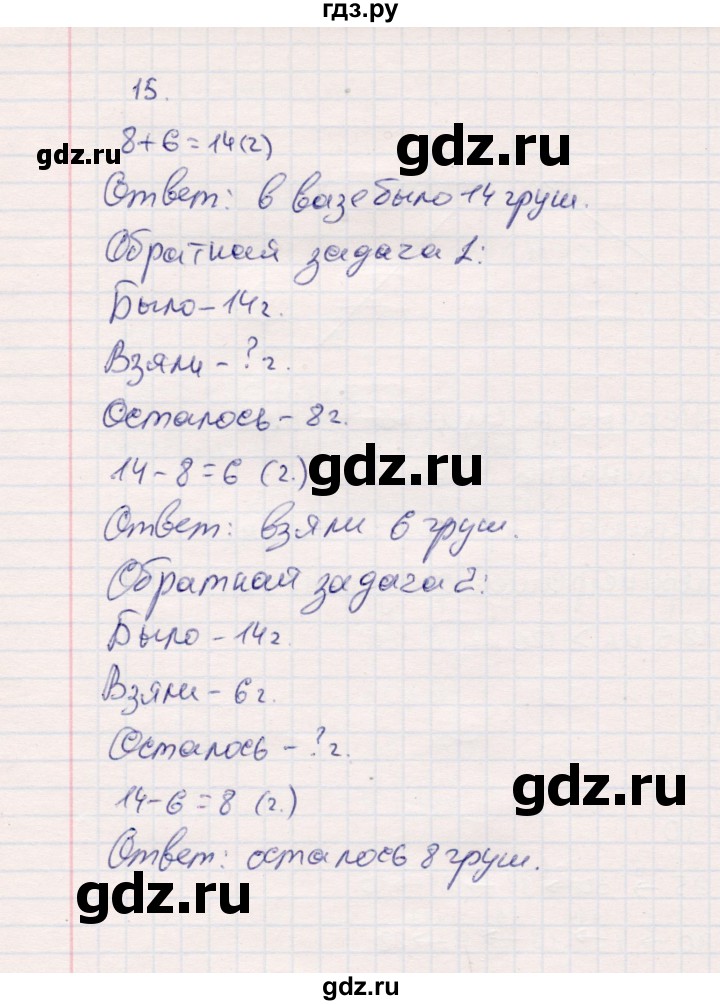 гдз.ру
15.
8+6=14(г)
gdz.ru
gdz.ru
Ответ: в вазе было 14 груш.
Обратная задача 1:
Было - 14 г.
Взяли - ? г.
Осталось - 8 г.
14 - 8 = 6 (г.)
gdz.ru
Ответ: взяли 6 груш.
Обратная задача 2:
Было - 14 г.
Взяли - 6 г.
Осталось - ? г.
14 - 6 = 8 (г.)
gdz.ru
Ответ: осталось 8 груш.
gdz.ru
gdz.ru